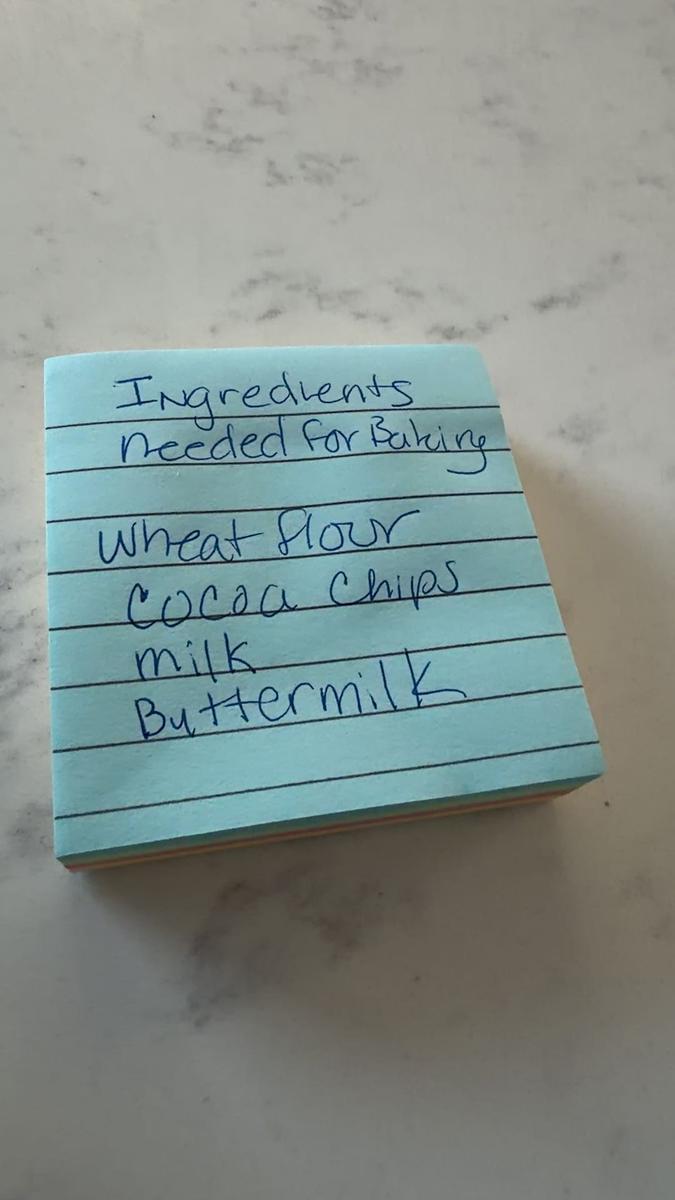 Ingredients
needed for Baking
Wheat flour
Cocoa Chips
milk
Buttermilk